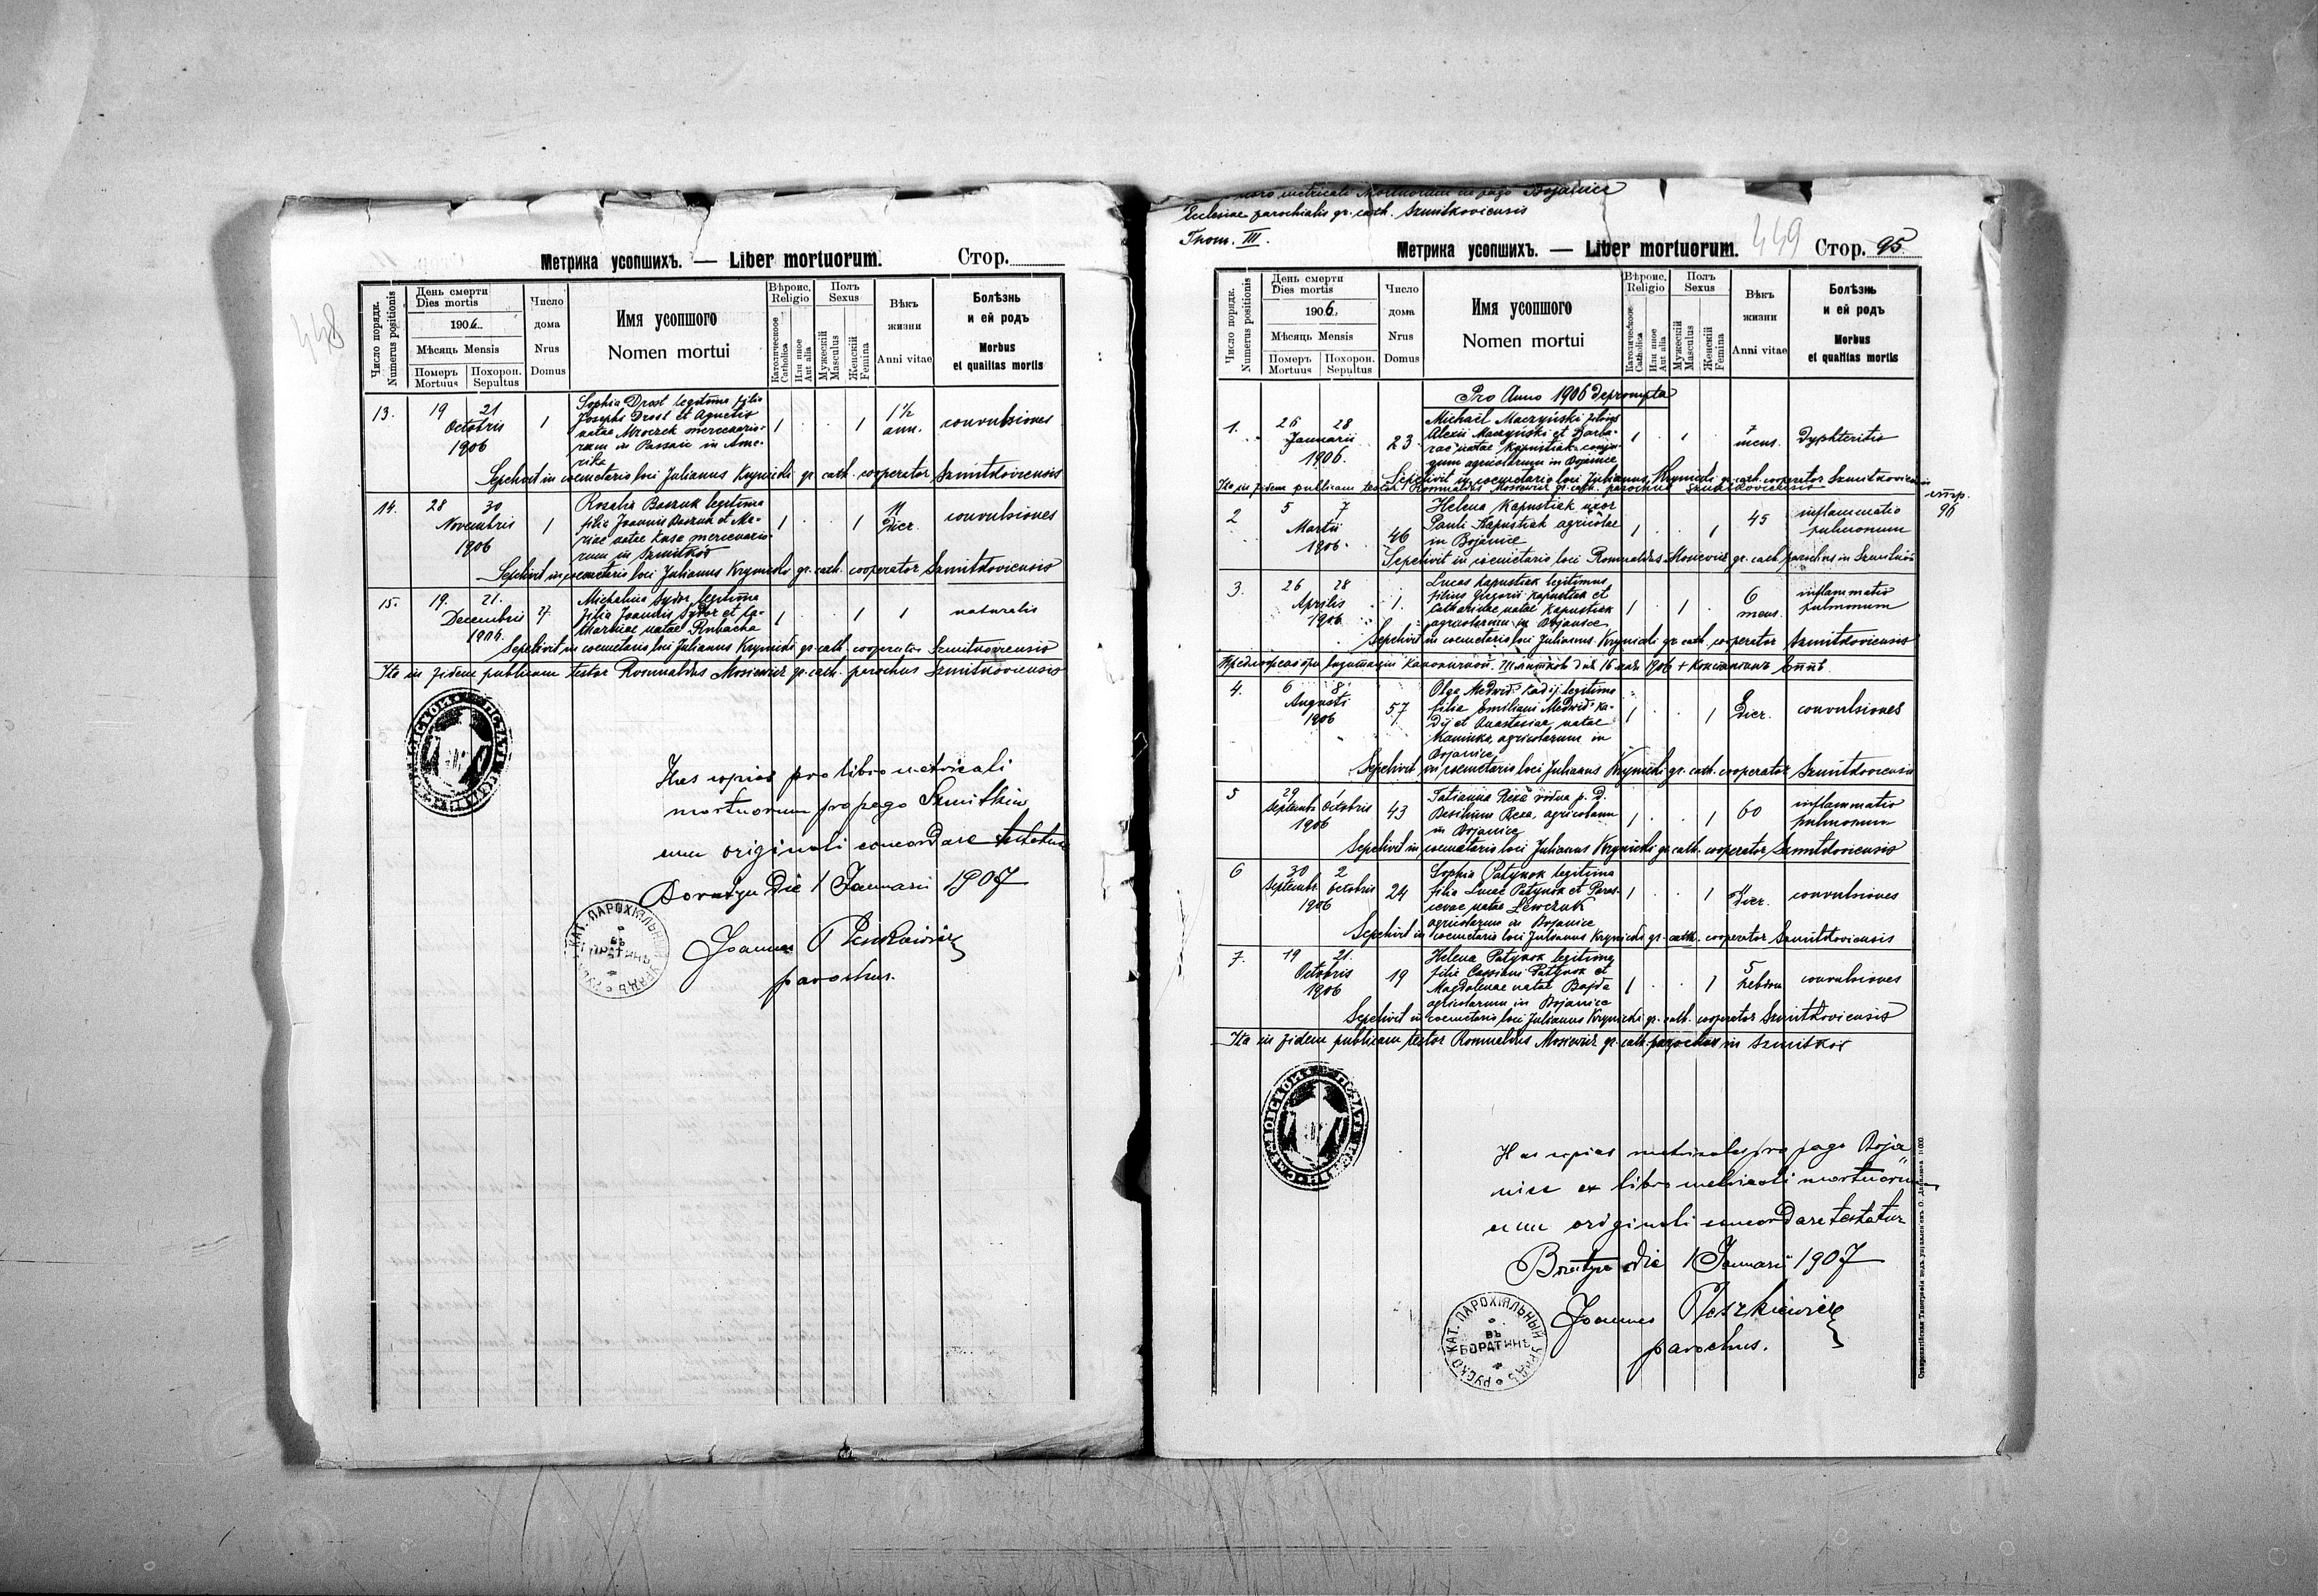 448
Метрика усопшихъ. — Liber mortuorum. Стор.
Число порядк. Numerus positionis
День смерти Dies mortis
1906.
Мѣсяць Mensis
Померъ Mortuus
Похорон. Sepultus
Число дома Nrus Domus
Имя усопшого Nomen mortui
Вѣроис. Religio
Католическоое Catholica
Или иное Aut alia
Полъ Sexus
Мужескій Masculus
Женскій Femina
Вѣкъ жизни Anni vitae
Болѣзнь и ей родъ Morbus et qualitas mortis
13. 19 21 Octobris 1906 1
Sophia Drost legitima filia
Josephi Drost et Agnetis
natae Mroczek mercenario-
rum in Passaic in Ame-
rika
1 . . 1 1½ ann. convulsiones
Sepelivit in coemetario loci Julianus Krynicki gr. cath. cooperator Szmitkoviensis
14. 28 30 Novembris 1906 1
Rosalia Baszuk legitima
filia Joannis Baszuk et Ma-
riae natae Kusa mercenario-
rum in Szmitków
1 . . 1 11 dier. convulsiones
Sepelivit in coemetario loci Julianus Krynicki gr. cath. cooperator Szmitkoviensis
15. 19. 21. Decembris 1906. 27.
Michalina Sydor legitima
filia Joannis Sydor et Ca-
tharinae natae Rubacha
1 . 1 1 naturalis
Sepelivit in coemetario loci Julianus Krynicki gr. cath. cooperator Szmitkoviensis
Ita in fidem publicam testor Romualdus Mosiewicz gr. cath. parochus Szmitkoviensis
Has copias pro libro metricali
mortuorum pro pago Szmitkiw
cum originali concordare testatur
Boratyn Die 1 Januarii 1907
Joannes Pleszkiewicz
parochus.
449
Ecclesiae parochialis gr. cath. Szmitkoviensis
Thom. III.
Метрика усопшихъ. — Liber mortuorum. Стор. 95
Число порядк. Numerus positionis
День смерти Dies mortis
1906.
Мѣсяць Mensis
Померъ Mortuus
Похорон. Sepultus
Число дома Nrus Domus
Имя усопшого Nomen mortui
Вѣроис. Religio
Католическоое Catholica
Или иное Aut alia
Полъ Sexus
Мужескій Masculus
Женскій Femina
Вѣкъ жизни Anni vitae
Болѣзнь и ей родъ Morbus et qualitas mortis
Pro Anno 1906 deprompta
1. 26 28 Januarii 1906. 23
Michael Maczyński filius
Alexii Maczyński et Barba-
rae natae Kapustiak conju-
gum agricolarum in Bojanice
1 . 1 . 7 mens. Dyphteritis
Sepelivit in coemetario loci Julianus Krynicki gr. cath. cooperator Szmitkoviensis
Ita in fidem publicam testor Romualdus Mosiewicz gr. cath. parochus Szmitkoviensis
стр. 96
2 5 7 Martii 1906. 46
Helena Kapustiak uxor
Pauli Kapustiak agricolae
in Bojanice
1 . . 1 45 inflammatio pulmonum
Sepelivit in coemetario loci Romualdus Mosiewicz gr. cath. parochus in Szmitków
3. 26 28 Aprilis 1906 1.
Lucas Kapustiak legitimus
filius Gregorii Kapustiak et
Catharinae natae Kapustiak
agricolarum in Bojanice
1 . 1 . 6 mens. inflammatio pulmonum
Sepelivit in coemetario loci Julianus Krynicki gr. cath. cooperator Szmitkoviensis
4. 6 8 Augusti 1906 57
Olga Medwid Kadij legitima
filia Emiliani Medwid Ka-
dij et Anastasiae natae
Kaminka, agricolarum in
Bojanice
1 . . 1 dier. convulsiones
Sepelivit in coemetario loci Julianus Krynicki gr. cath. cooperator Szmitkoviensis
5 29 Septembr. 1 Octobris 1906 43
in Bojanice
1 . . 1 60 inflammatio pulmonum
Sepelivit in coemetario loci Julianus Krynicki gr. cath. cooperator Szmitkoviensis
6 30 Septembr. 2 Octobris 1906 24
Sophia Patynok legitima
filia Lucae Patynok et Paras-
cevae natae Lewczuk
agricolarum in Bojanice
1 . . 1 dier. convulsiones
Sepelivit in coemetario loci Julianus Krynicki gr. cath. cooperator Szmitkoviensis
7. 19 21. Octobris 1906 19
Helena Patynok legitima
filia Cassiani Patynok et
Magdalenae natae Bajda
agricolarum in Bojanice
1 . . 1 5 hebdom convulsiones
Sepelivit in coemetario loci Julianus Krynicki gr. cath. cooperator Szmitkoviensis
Ita in fidem publicam testor Romualdus Mosiewicz gr. cath. parochus in Szmitków
Has copias metricales pro pago Boja-
nice ex libro metricali mortuorum
cum originali concordare testatur
Boratyn die 1 Januarii 1907
Joannes Pleszkiewicz
parochus.
РУСКО КАТ. ПАРОХІЯЛЬНЫЙ УРЯДЪ
ВЪ
БОРАТИНѢ